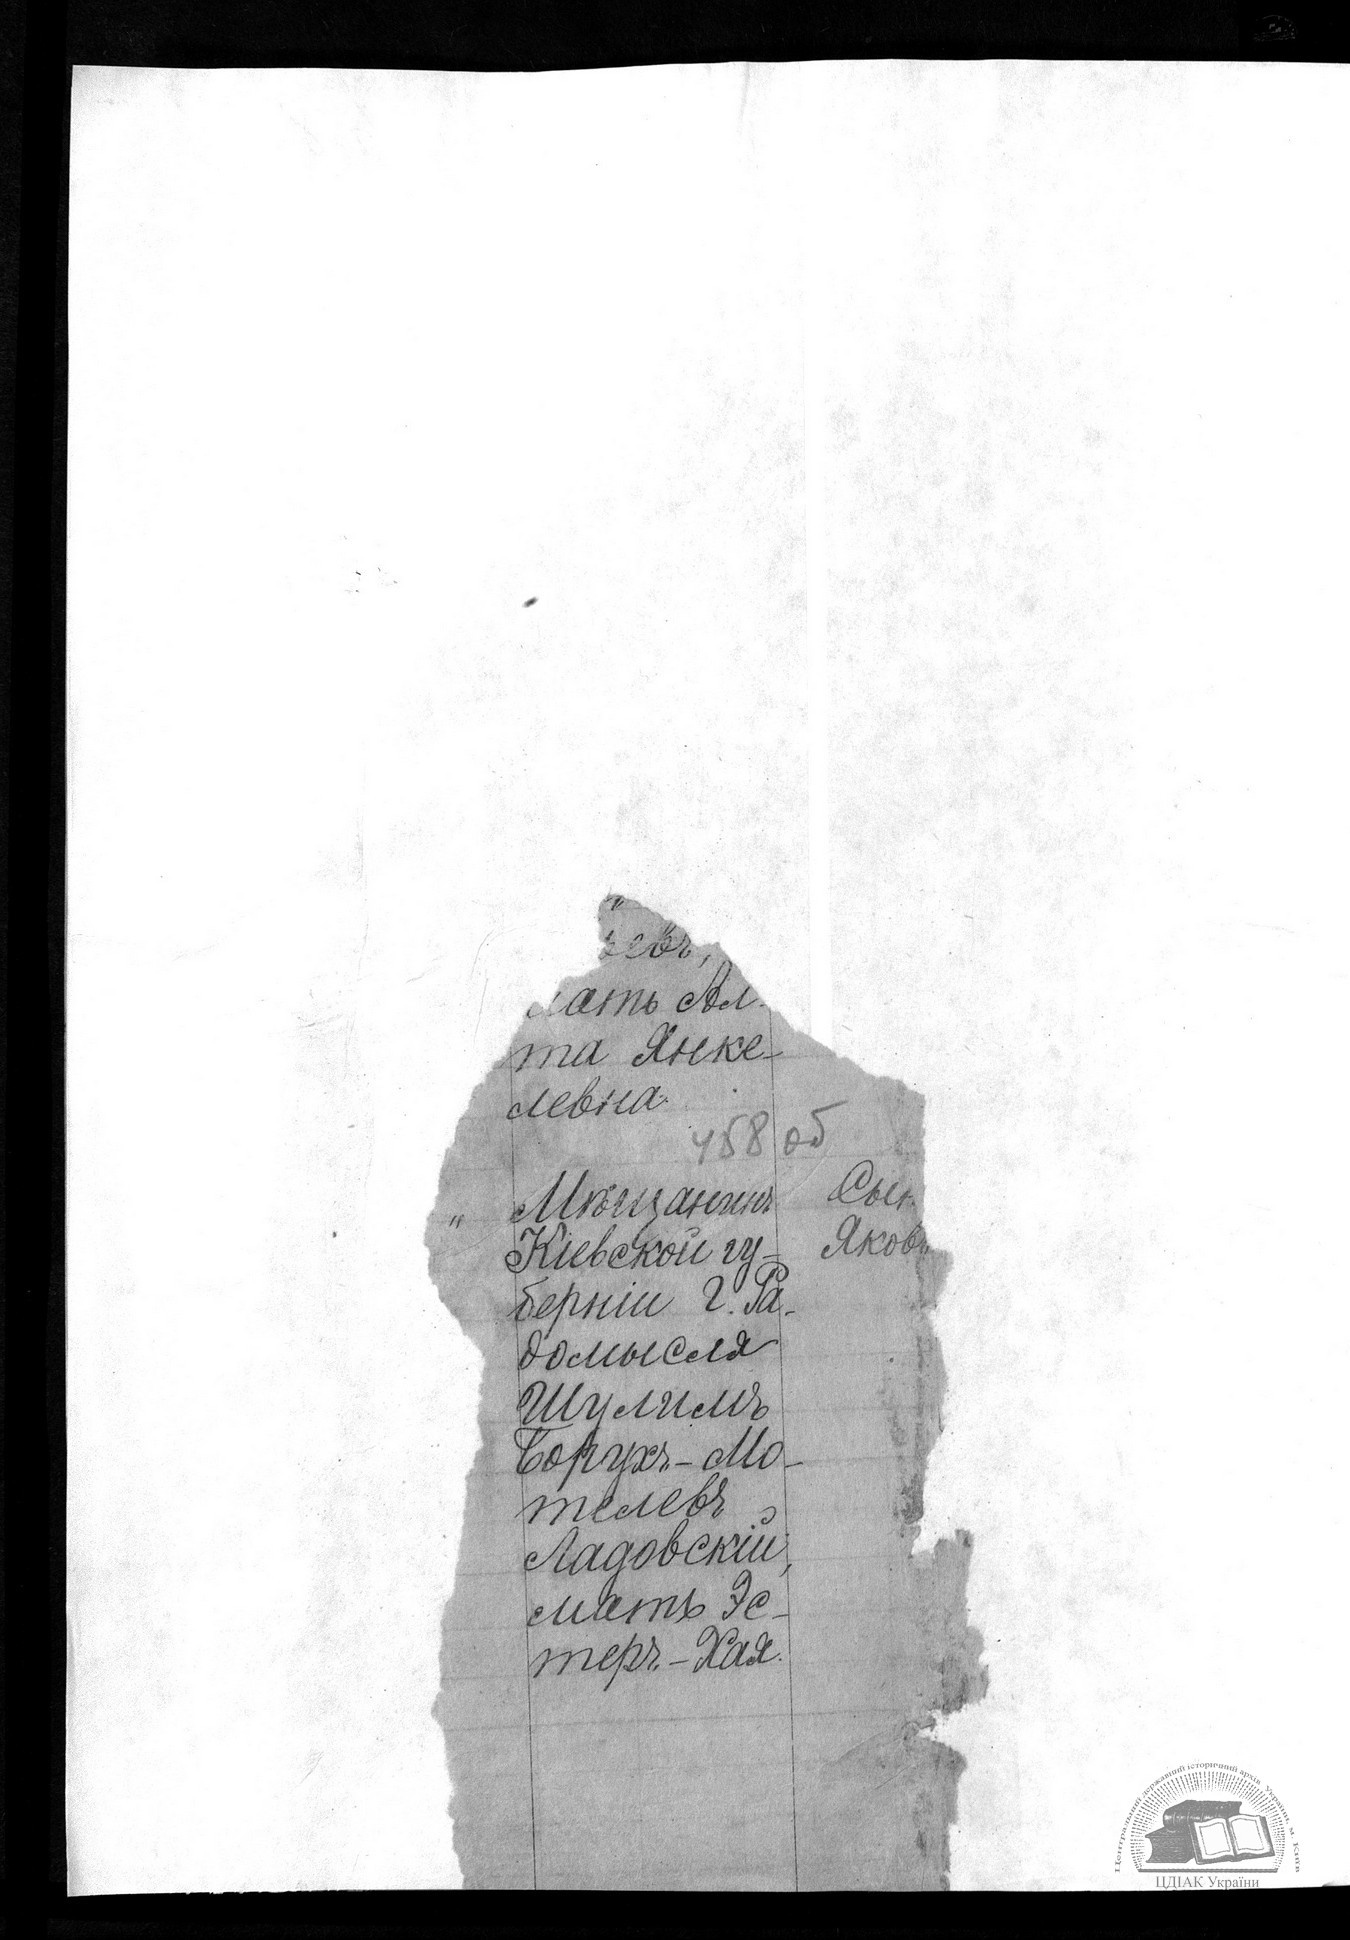 мать Ал-
та Янке-
левна.
458 об
" Мѣщанинъ
Кіевской гу-
берніи г. Ра-
домысля
Шулимъ
Борухъ-Мо-
телевъ
Ладовскій,
мать Эс-
теръ-Хая.
Сын
Яковъ
Центральний державний історичний архів України, м. Київ
ЦДІАК України